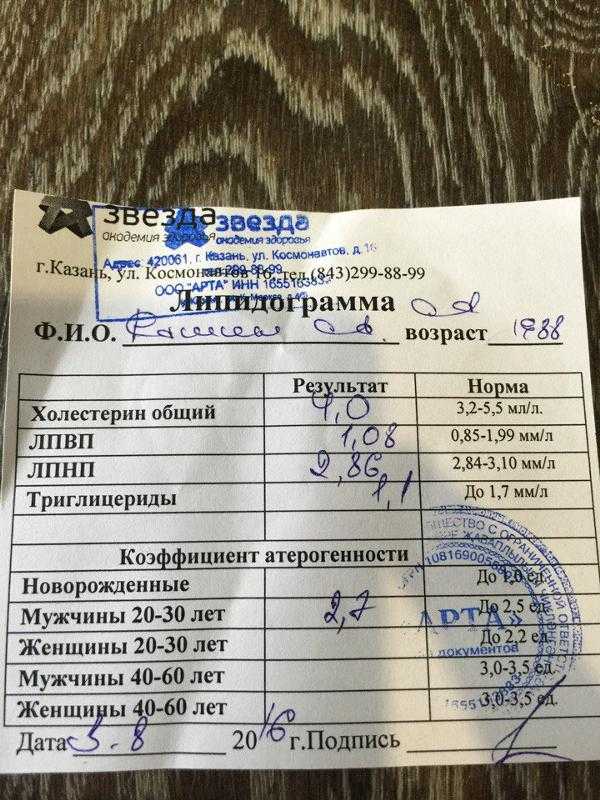 звезда звезда
академия здоровья академия здоровья
Адрес: 420061, г. Казань, ул. Космонавтов, д. 16
г.Казань, ул. Космонавтов 16, тел.(843)299-88-99
289-88-99
ООО "АРТА" ИНН
Липидограмма
Ф.И.О. возраст 1988
Результат Норма
Холестерин общий 4,0 3,2-5,5 мл/л.
ЛПВП 1,08 0,85-1,99 мм/л
ЛПНП 2,86 2,84-3,10 мм/л
Триглицериды 1,1 До 1,7 мм/л
Коэффициент атерогенности
Новорожденные До 1,0 ед.
Мужчины 20-30 лет 2,7 До 2,5 ед.
Женщины 20-30 лет До 2,2 ед.
Мужчины 40-60 лет 3,0-3,5 ед.
Женщины 40-60 лет 3,0-3,5 ед.
АРТА»
документов
Дата 3.8 2016 г.Подпись